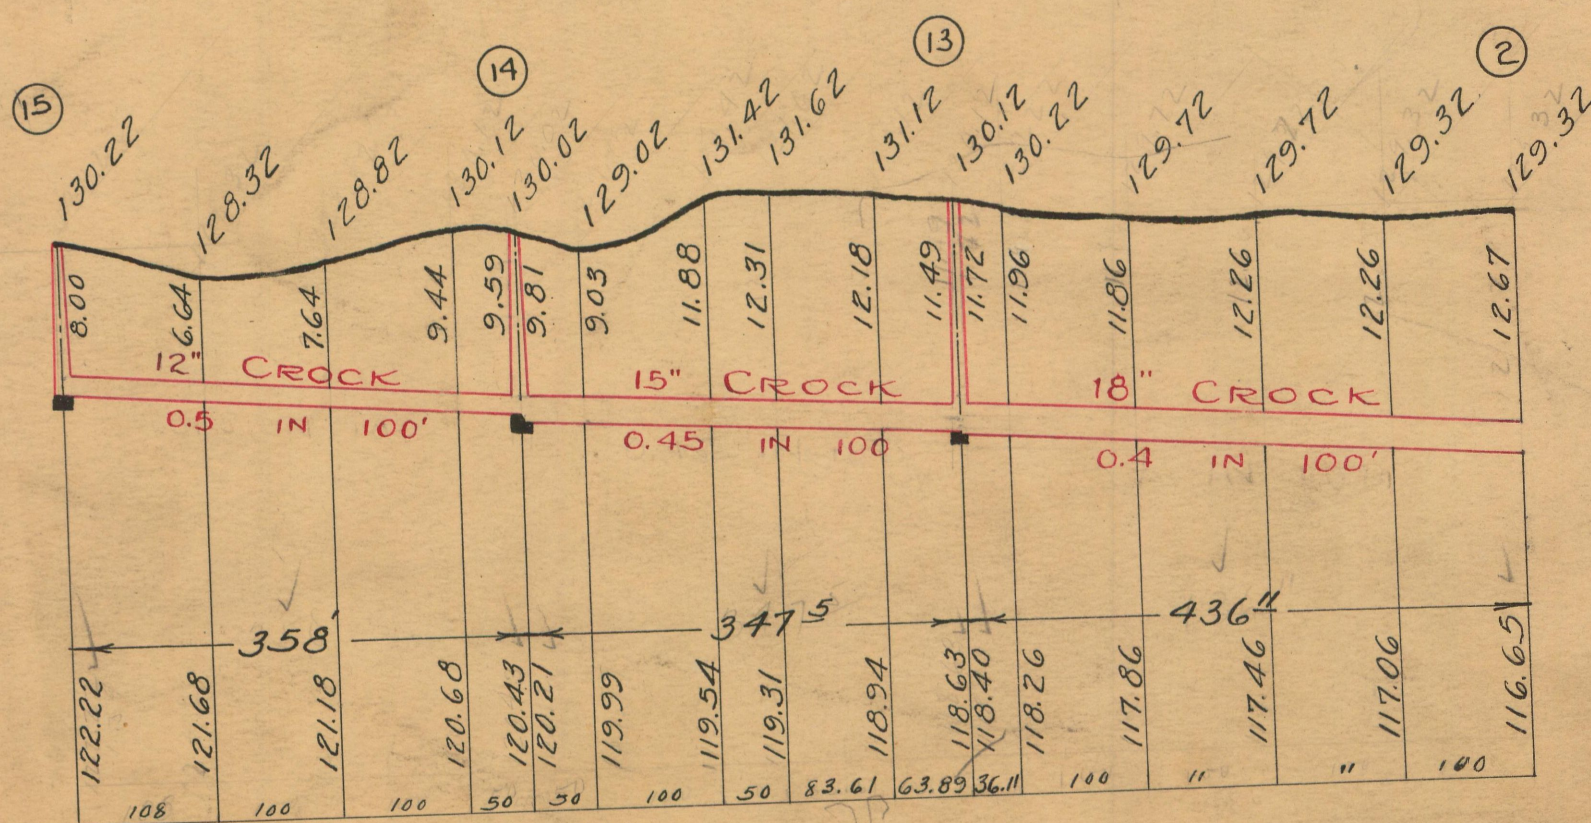 15 14 13 2
130.22 128.32 128.82 130.12 130.02 129.02 131.42 131.62 131.12 130.12 130.22 129.72 129.72 129.32 129.32
8.00 6.64 7.64 9.44 9.59 9.81 9.03 11.88 12.31 12.18 11.49 11.72 11.96 11.86 12.26 12.26 12.67
12" CROCK 15" CROCK 18" CROCK
0.5 IN 100' 0.45 IN 100 0.4 IN 100'
358' 347 5 436 11
122.22 121.68 121.18 120.68 120.43 120.21 119.99 119.54 119.31 118.94 118.63 118.40 118.26 117.86 117.46 117.06 116.65
108 100 100 50 50 100 50 83.61 63.89 36.11 100 " " 100